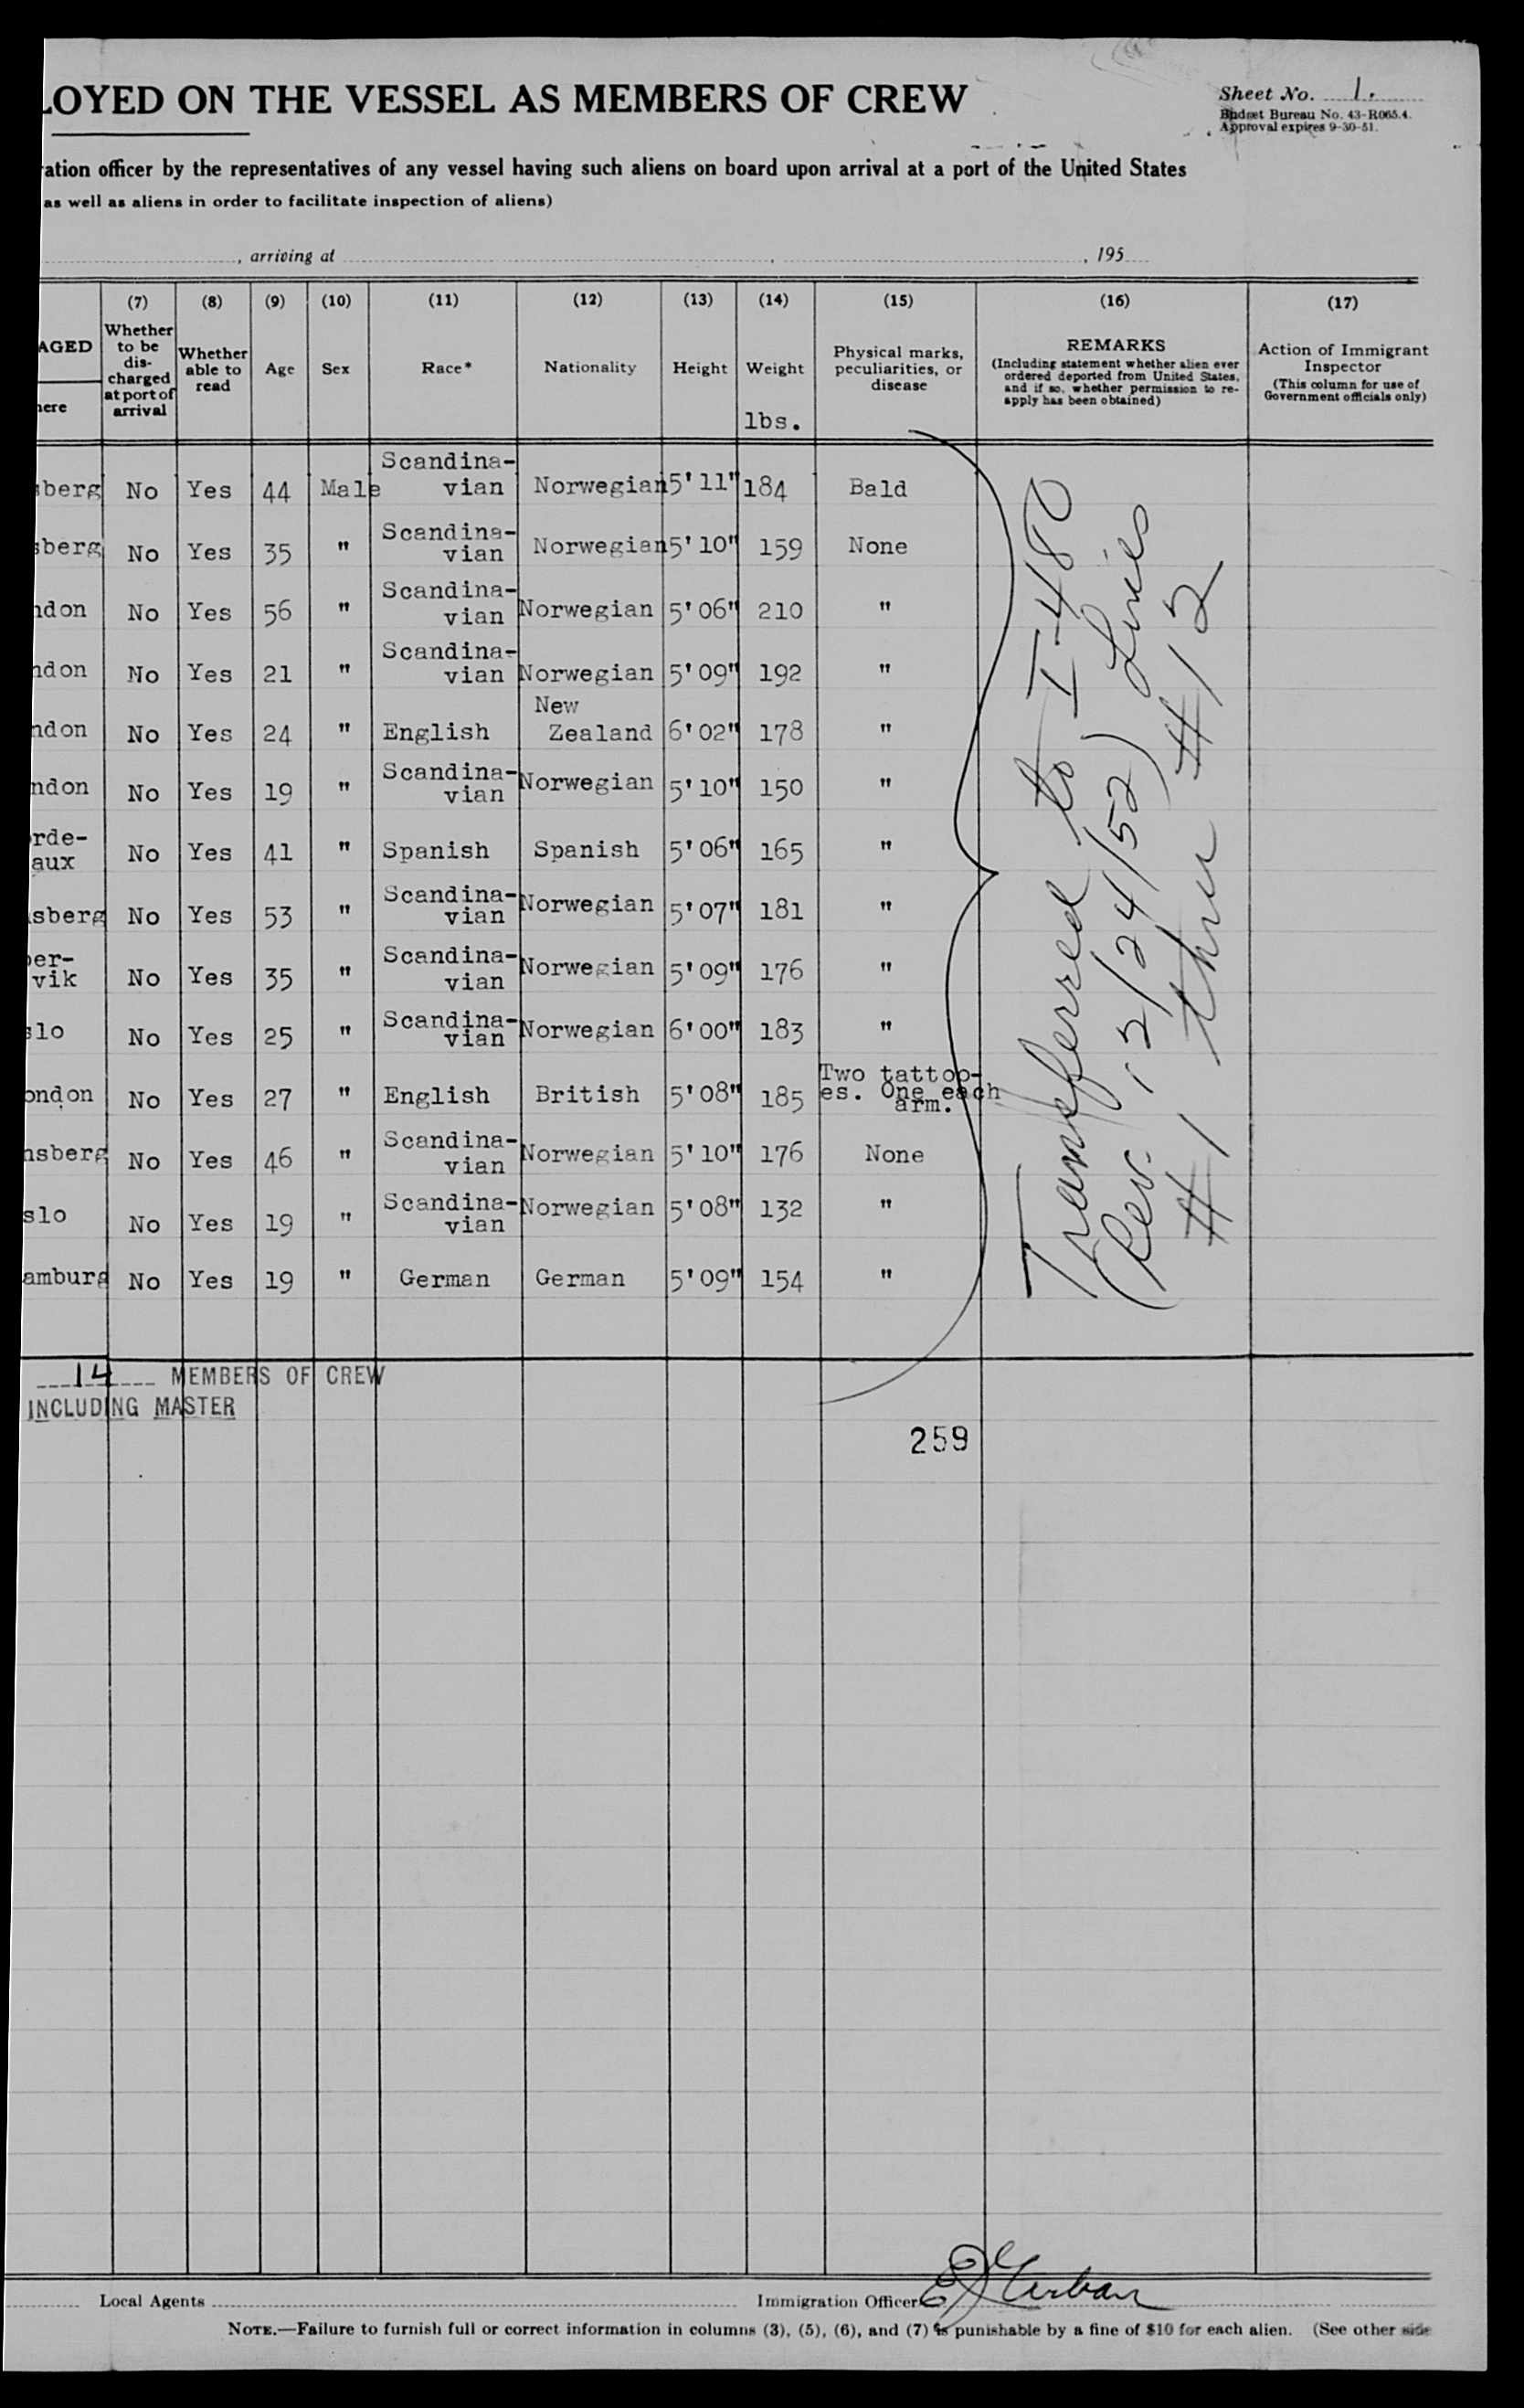 LOYED ON THE VESSEL AS MEMBERS OF CREW
Sheet No. 1.
Budget Bureau No. 43-R065.4.
Approval expires 9-30-51.
ration officer by the representatives of any vessel having such aliens on board upon arrival at a port of the United States
as well as aliens in order to facilitate inspection of aliens)
, arriving at , , 195
AGED here
(7) Whether to be dis-charged at port of arrival
(8) Whether able to read
(9) Age
(10) Sex
(11) Race*
(12) Nationality
(13) Height
(14) Weight lbs.
(15) Physical marks, peculiarities, or disease
(16) REMARKS (Including statement whether alien ever ordered deported from United States, and if so, whether permission to re-apply has been obtained)
(17) Action of Immigrant Inspector (This column for use of Government officials only)
sberg No Yes 44 Male Scandina-vian Norwegian 5'11" 184 Bald
sberg No Yes 35 " Scandina-vian Norwegian 5'10" 159 None
ndon No Yes 56 " Scandina-vian Norwegian 5'06" 210 "
ndon No Yes 21 " Scandina-vian Norwegian 5'09" 192 "
ndon No Yes 24 " English New Zealand 6'02" 178 "
ndon No Yes 19 " Scandina-vian Norwegian 5'10" 150 "
orde-aux No Yes 41 " Spanish Spanish 5'06" 165 "
nsberg No Yes 53 " Scandina-vian Norwegian 5'07" 181 "
per-vik No Yes 35 " Scandina-vian Norwegian 5'09" 176 "
slo No Yes 25 " Scandina-vian Norwegian 6'00" 183 "
ondon No Yes 27 " English British 5'08" 185 Two tattoo-es. One each arm.
nsberg No Yes 46 " Scandina-vian Norwegian 5'10" 176 None
slo No Yes 19 " Scandina-vian Norwegian 5'08" 132 "
amburg No Yes 19 " German German 5'09" 154 "
Transferred to I-480
(Rev. 12/24/52) Lines
#1 thru #12
14 MEMBERS OF CREW
INCLUDING MASTER
259
Local Agents
Immigration Officer
NOTE.—Failure to furnish full or correct information in columns (3), (5), (6), and (7) is punishable by a fine of $10 for each alien. (See other side